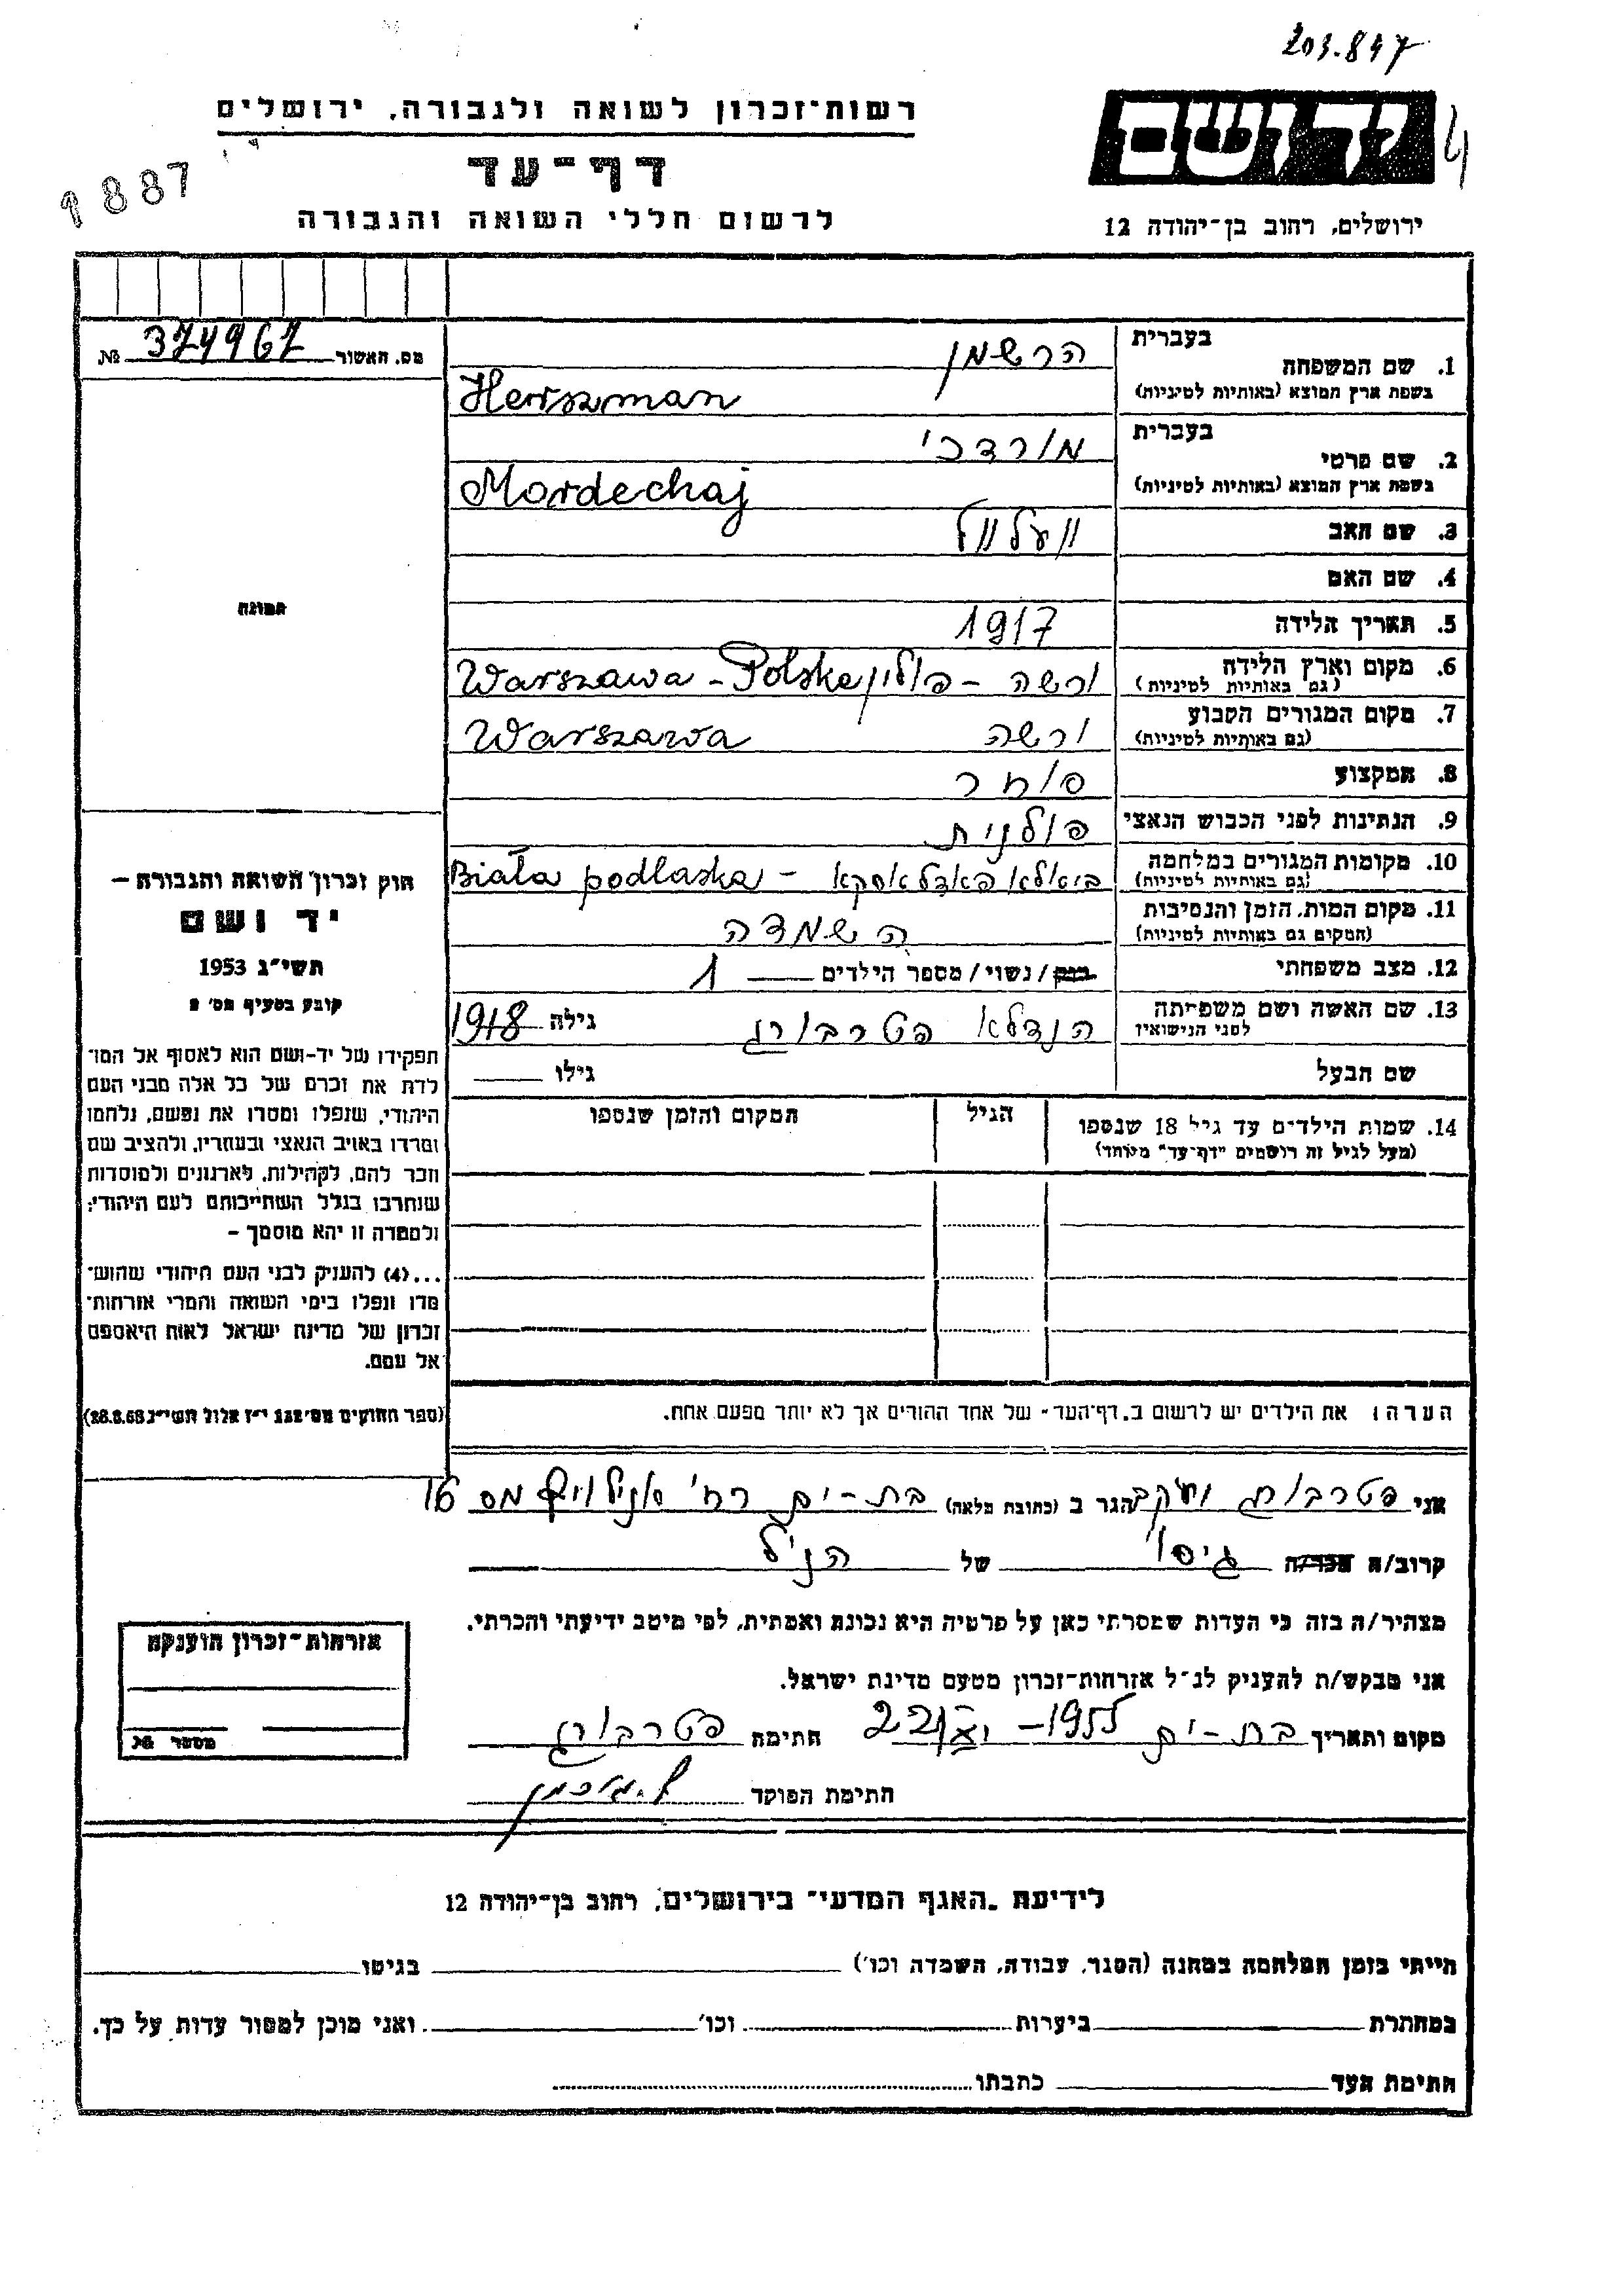 203.847
רשות־זכרון לשואה ולגבורה, ירושלים
יד ושם
דף־עד
1887
לרשום חללי השואה והגבורה
ירושלים, רחוב בן־יהודה 12
מס. האשור 374967 №
תמונה
חוק זכרון השואה והגבורה –
יד ושם
תשי״ג 1953
קובע בסעיף מס׳ 2
תפקידו של יד-ושם הוא לאסוף אל המו־
לדת את זכרם של כל אלה מבני העם
היהודי, שנפלו ומסרו את נפשם, נלחמו
ומרדו באויב הנאצי ובעוזריו, ולהציב שם
וזכר להם, לקהילות, לארגונים ולמוסדות
שנחרבו בגלל השתייכותם לעם היהודי;
ולמטרה זו יהא מוסמך –
...(4) להעניק לבני העם היהודי שהוש־
מדו ונפלו בימי השואה והמרי אזרחות־
זכרון של מדינת ישראל לאות היאספם
אל עמם.
(ספר החוקים מס׳ 132 י״ז אלול תשי״ג 28.8.53)
בעברית הרשמן
1. שם המשפחה
בשפת ארץ המוצא (באותיות לטיניות) Herszman
בעברית מורדכי
2. שם פרטי
בשפת ארץ המוצא (באותיות לטיניות) Mordechaj
3. שם האב וועלוול
4. שם האם
5. תאריך הלידה 1917
6. מקום וארץ הלידה ורשה – פולין Warszawa – Polska
(גם באותיות לטיניות)
7. מקום המגורים הקבוע ורשה Warszawa
(גם באותיות לטיניות)
8. המקצוע סוחר
9. הנתינות לפני הכבוש הנאצי פולנית
10. מקומות המגורים במלחמה ביאלא פאדלאסקא – Biała podlaska
(גם באותיות לטיניות)
11. מקום המות, הזמן והנסיבות השמדה
(המקום גם באותיות לטיניות)
12. מצב משפחתי רווק/נשוי/מספר הילדים 1
13. שם האשה ושם משפחתה הנדלא פטרבורג גילה 1918
לפני הנישואין
שם הבעל גילו
14. שמות הילדים עד גיל 18 שנספו הגיל המקום והזמן שנספו
(מעל לגיל זה רושמים ״דף־עד״ מיוחד)
הערה: את הילדים יש לרשום ב„דף־העד״ של אחד ההורים אך לא יותר מפעם אחת.
אני פטרבורג יעקב הגר ב (כתובת מלאה) בת-ים רח׳ אנילויץ מס 16
קרוב/ה מכר/ה גיסו של הנ״ל
מצהיר/ה בזה כי העדות שמסרתי כאן על פרטיה היא נכונה ואמתית, לפי מיטב ידיעתי והכרתי.
אני מבקש/ת להעניק לנ״ל אזרחות־זכרון מטעם מדינת ישראל.
מקום ותאריך בת-ים 1955 חתימה פטרבורג
חתימת הפוקד
אזרחות־זכרון הוענקה
מספר №
לידיעת „האגף המדעי״ בירושלים, רחוב בן־יהודה 12
הייתי בזמן המלחמה במחנה (הסגר, עבודה, השמדה וכו׳) בגיטו
במחתרת ביערות וכו׳ ואני מוכן למסור עדות על כך.
חתימת העד כתבתו